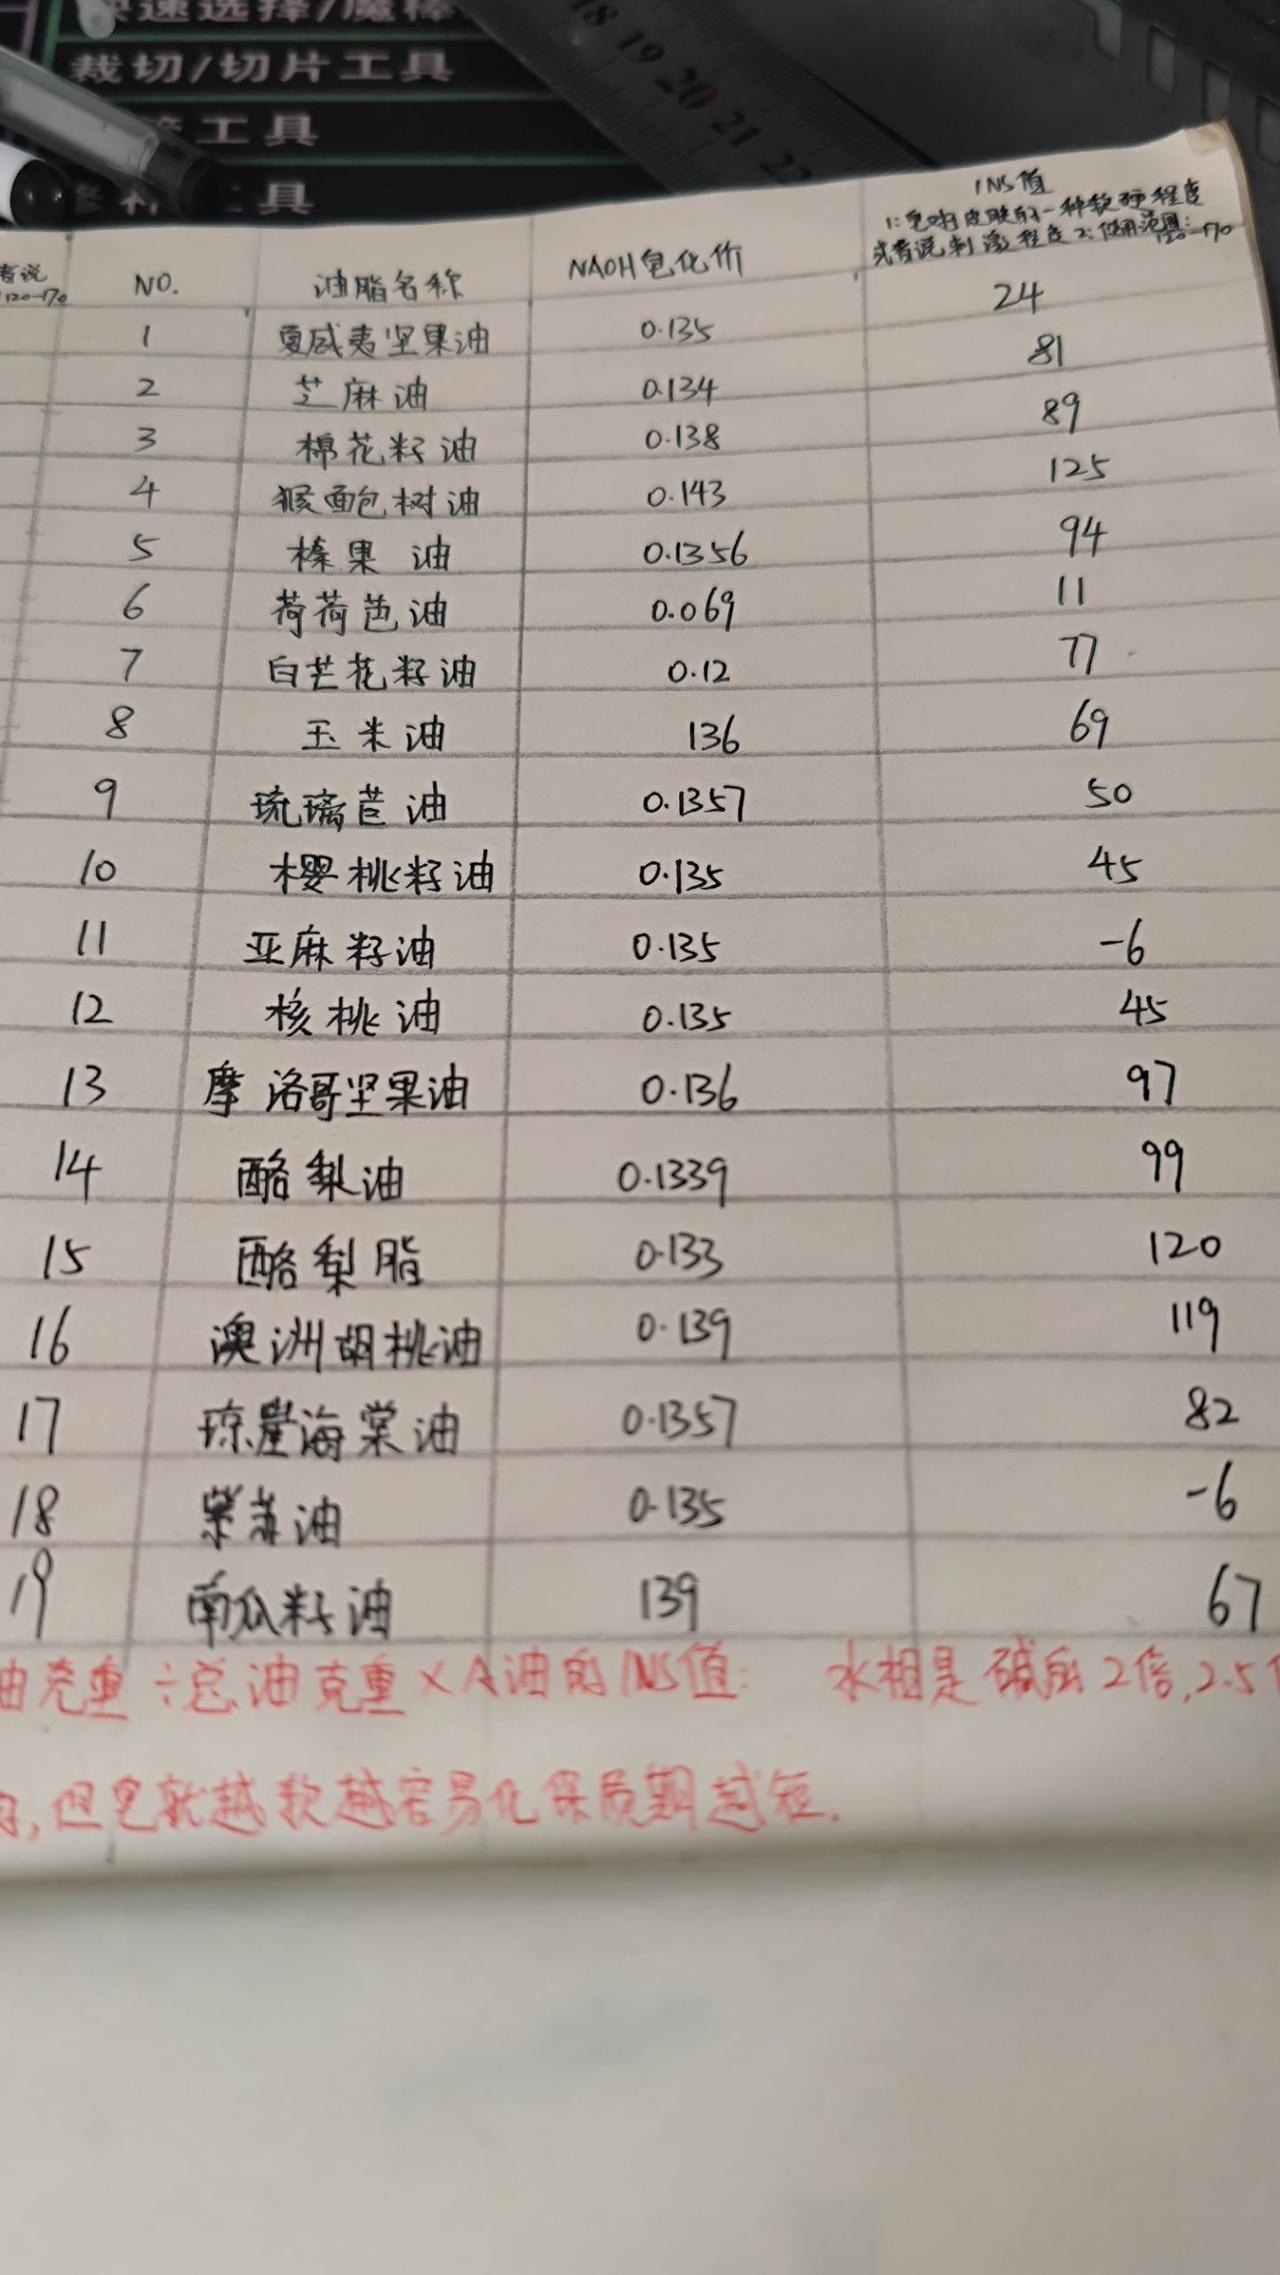 速选择/魔棒
裁切/切片工具
工具
具
18 19 20 21 22
者说
120-170
NO. 油脂名称 NAOH皂化价 INS值
1:皂对皮肤的一种软硬程度
或者说刺激程度 2:使用范围:
120-170
1 夏威夷坚果油 0.135 24
2 芝麻油 0.134 81
3 棉花籽油 0.138 89
4 猴面包树油 0.143 125
5 榛果油 0.1356 94
6 荷荷芭油 0.069 11
7 白芒花籽油 0.12 77
8 玉米油 136 69
9 琉璃苣油 0.1357 50
10 樱桃籽油 0.135 45
11 亚麻籽油 0.135 -6
12 核桃油 0.135 45
13 摩洛哥坚果油 0.136 97
14 酪梨油 0.1339 99
15 酪梨脂 0.133 120
16 澳洲胡桃油 0.139 119
17 琼崖海棠油 0.1357 82
18 紫苏油 0.135 -6
19 南瓜籽油 139 67
油克重÷总油克重×A油的INS值: 水相是碱的2倍,2.5
,但皂就越软越容易化保质期越短.